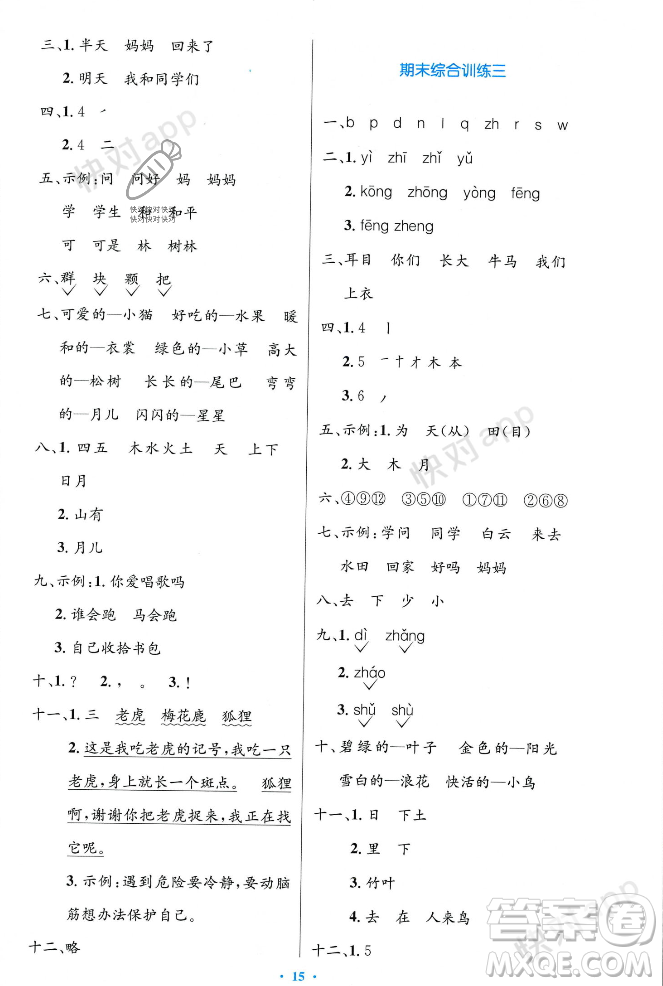 三、1.半天 妈妈 回来了
2.明天 我和同学们
四、1.4 丶
2.4 二
五、示例:问 问好 妈 妈妈
学 学生 和 和平
可 可是 林 树林
六、群 块 颗 把
七、可爱的—小猫 好吃的—水果 暖
和的—衣裳 绿色的—小草 高大
的—松树 长长的—尾巴 弯弯
的—月儿 闪闪的—星星
八、1.四五 木水火土 天 上下
日月
2.山有
3.月儿
九、示例:1.你爱唱歌吗
2.谁会跑 马会跑
3.自己收拾书包
十、1.? 2., 。 3.!
十一、1.三 老虎 梅花鹿 狐狸
2.这是我吃老虎的记号,我吃一只
老虎,身上就长一个斑点。 狐狸
啊,谢谢你把老虎捉来,我正在找
它呢。
3.示例:遇到危险要冷静,要动脑
筋想办法保护自己。
十二、略
期末综合训练三
一、b p d n l q zh r s w
二、1.yì zhī zhǐ yǔ
2.kōng zhōng yòng fēng
3.fēng zheng
三、耳目 你们 长大 牛马 我们
上衣
四、1.4 丨
2.5 一十才木本
3.6 ノ
五、示例:1.为 天(从) 田(目)
2.大 木 月
六、④⑨⑫ ③⑤⑩ ①⑦⑪ ②⑥⑧
七、示例:学问 同学 白云 去来
水田 回家 好吗 妈妈
八、去 下 少 小
九、1.dì zhǎng
2.zháo
3.shǔ shù
十、碧绿的—叶子 金色的—阳光
雪白的—浪花 快活的—小鸟
十一、1.日 下土
2.里 下
3.竹叶
4.去 在 人来鸟
十二、1.5
15
快对app
快对app
快对app
快对快对快对
快对快对快对
答案圈
MXQE.COM